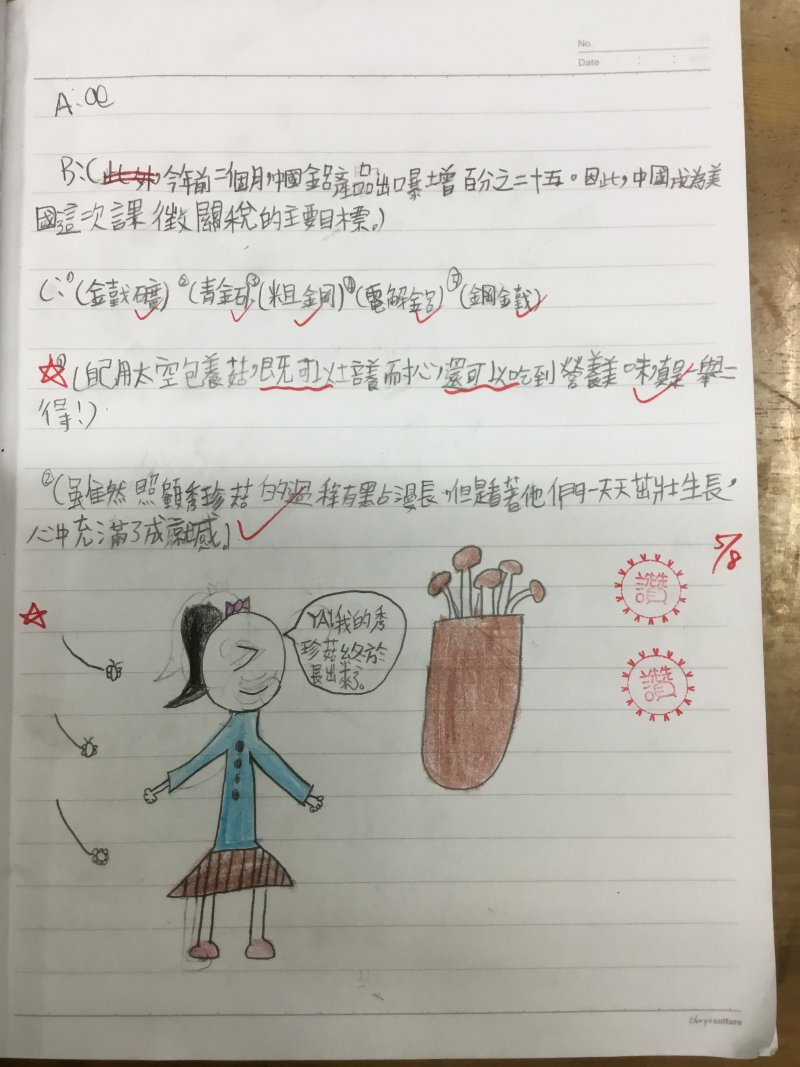 No.
Date : :
A:ae
B:(此外,今年前二個月,中國金呂產品出口暴增百分之二十五。因此,中國成為美
國這次課徵關稅的主要目標。)
C:①(金戴礦)②(青金石)③(粗金岡)④(電解金呂)⑤(鋼金戴)
①(自己用太空包養菇,既可以培養耐心,還可以吃到營養美味,真是一舉二
得!)
②(雖然照顧秀珍菇的過程有點漫長,但是看著他們一天天茁壯生長,
心中充滿了成就感。)
5/8
讚
讚
YA!我的秀
珍菇終於
長出來了。
culture